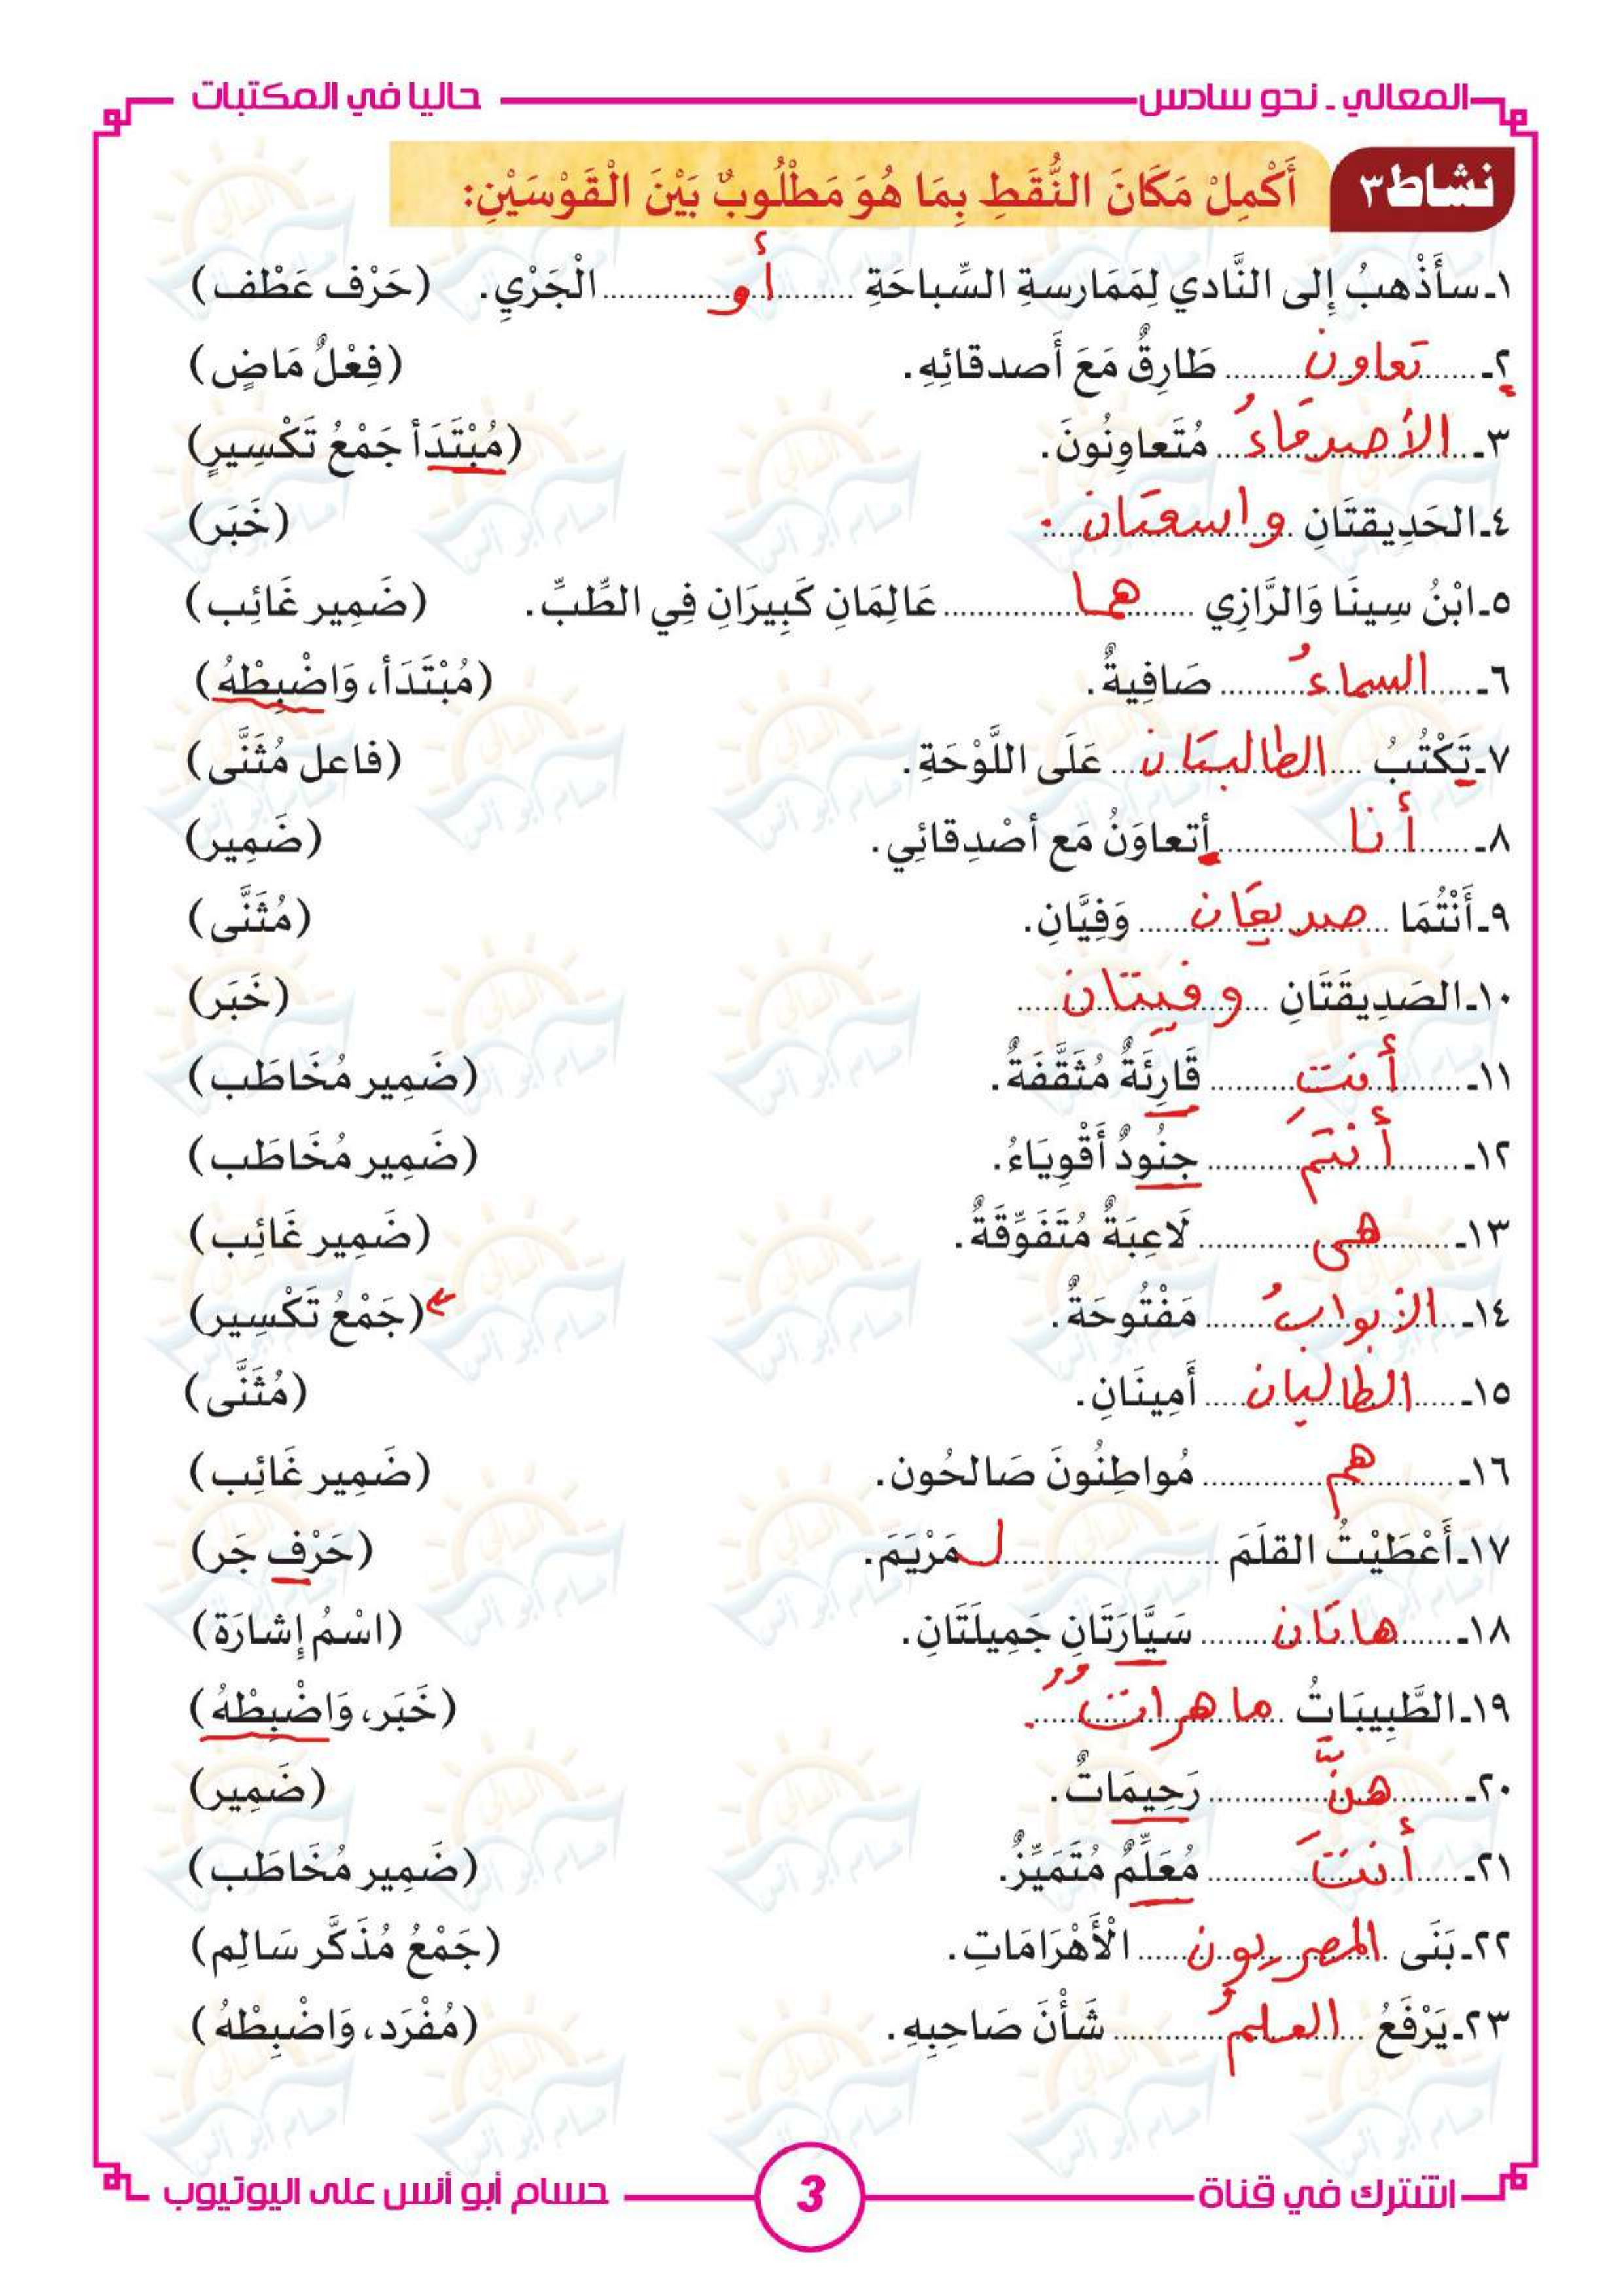 المعالي ـ نحو سادس حاليا في المكتبات
نشاط ٣ أَكْمِلْ مَكَانَ النُّقَطِ بِمَا هُوَ مَطْلُوبٌ بَيْنَ الْقَوْسَيْنِ:
١ـ سأَذْهبُ إِلى النَّادي لِمَمَارسةِ السِّباحَةِ ..... أو ..... الْجَرْيِ. (حَرْف عَطْف)
٢ـ ..... تعاون ..... طَارِقٌ مَعَ أَصدقائِهِ. (فِعْلٌ مَاضٍ)
٣ـ ..... الأصدقاءُ ..... مُتَعاوِنُونَ. (مُبْتَدَأ جَمْعُ تَكْسِيرٍ)
٤ـ الحَدِيقتَانِ ..... واسعتان ..... . (خَبَر)
٥ـ ابْنُ سِينَا وَالرَّازِي ..... هما ..... عَالِمَانِ كَبِيرَانِ فِي الطِّبِّ. (ضَمِير غَائِب)
٦ـ ..... السماءُ ..... صَافِيةٌ. (مُبْتَدَأ، وَاضْبِطْهُ)
٧ـ تَكْتُبُ ..... الطالبتان ..... عَلَى اللَّوْحَةِ. (فاعل مُثَنَّى)
٨ـ ..... أنا ..... أتعاوَنُ مَع أصْدِقائِي. (ضَمِير)
٩ـ أَنْتُمَا ..... صديقان ..... وَفِيَّانِ. (مُثَنَّى)
١٠ـ الصَدِيقَتَانِ ..... وفيتان ..... (خَبَر)
١١ـ ..... أنتِ ..... قَارِئَةٌ مُثَقَّفَةٌ. (ضَمِير مُخَاطَب)
١٢ـ ..... أنتم ..... جنُودٌ أَقْوِيَاءُ. (ضَمِير مُخَاطَب)
١٣ـ ..... هى ..... لَاعِبَةٌ مُتَفَوِّقَةٌ. (ضَمِير غَائِب)
١٤ـ ..... الأبوابُ ..... مَفْتُوحَةٌ. (جَمْعُ تَكْسِير)
١٥ـ ..... الطالبان ..... أَمِينَانِ. (مُثَنَّى)
١٦ـ ..... هم ..... مُواطِنُونَ صَالحُون. (ضَمِير غَائِب)
١٧ـ أَعْطَيْتُ القلَمَ ..... لـ مَرْيَمَ. (حَرْف جَر)
١٨ـ ..... هاتان ..... سَيَّارَتَانِ جَمِيلَتَانِ. (اسْمُ إشارَة)
١٩ـ الطَّبِيبَاتُ ..... ماهراتٌ ..... . (خَبَر، وَاضْبِطْهُ)
٢٠ـ ..... هنَّ ..... رَحِيمَاتٌ. (ضَمِير)
٢١ـ ..... أنتَ ..... مُعَلِّمٌ مُتَمَيِّزٌ. (ضَمِير مُخَاطَب)
٢٢ـ بَنَى ..... المصريون ..... الْأَهْرَامَاتِ. (جَمْعُ مُذَكَّر سَالِم)
٢٣ـ يَرْفَعُ ..... العلمُ ..... شَأْنَ صَاحِبِهِ. (مُفْرَد، وَاضْبِطْهُ)
اشترك في قناة 3 حسام أبو أنس على اليوتيوب